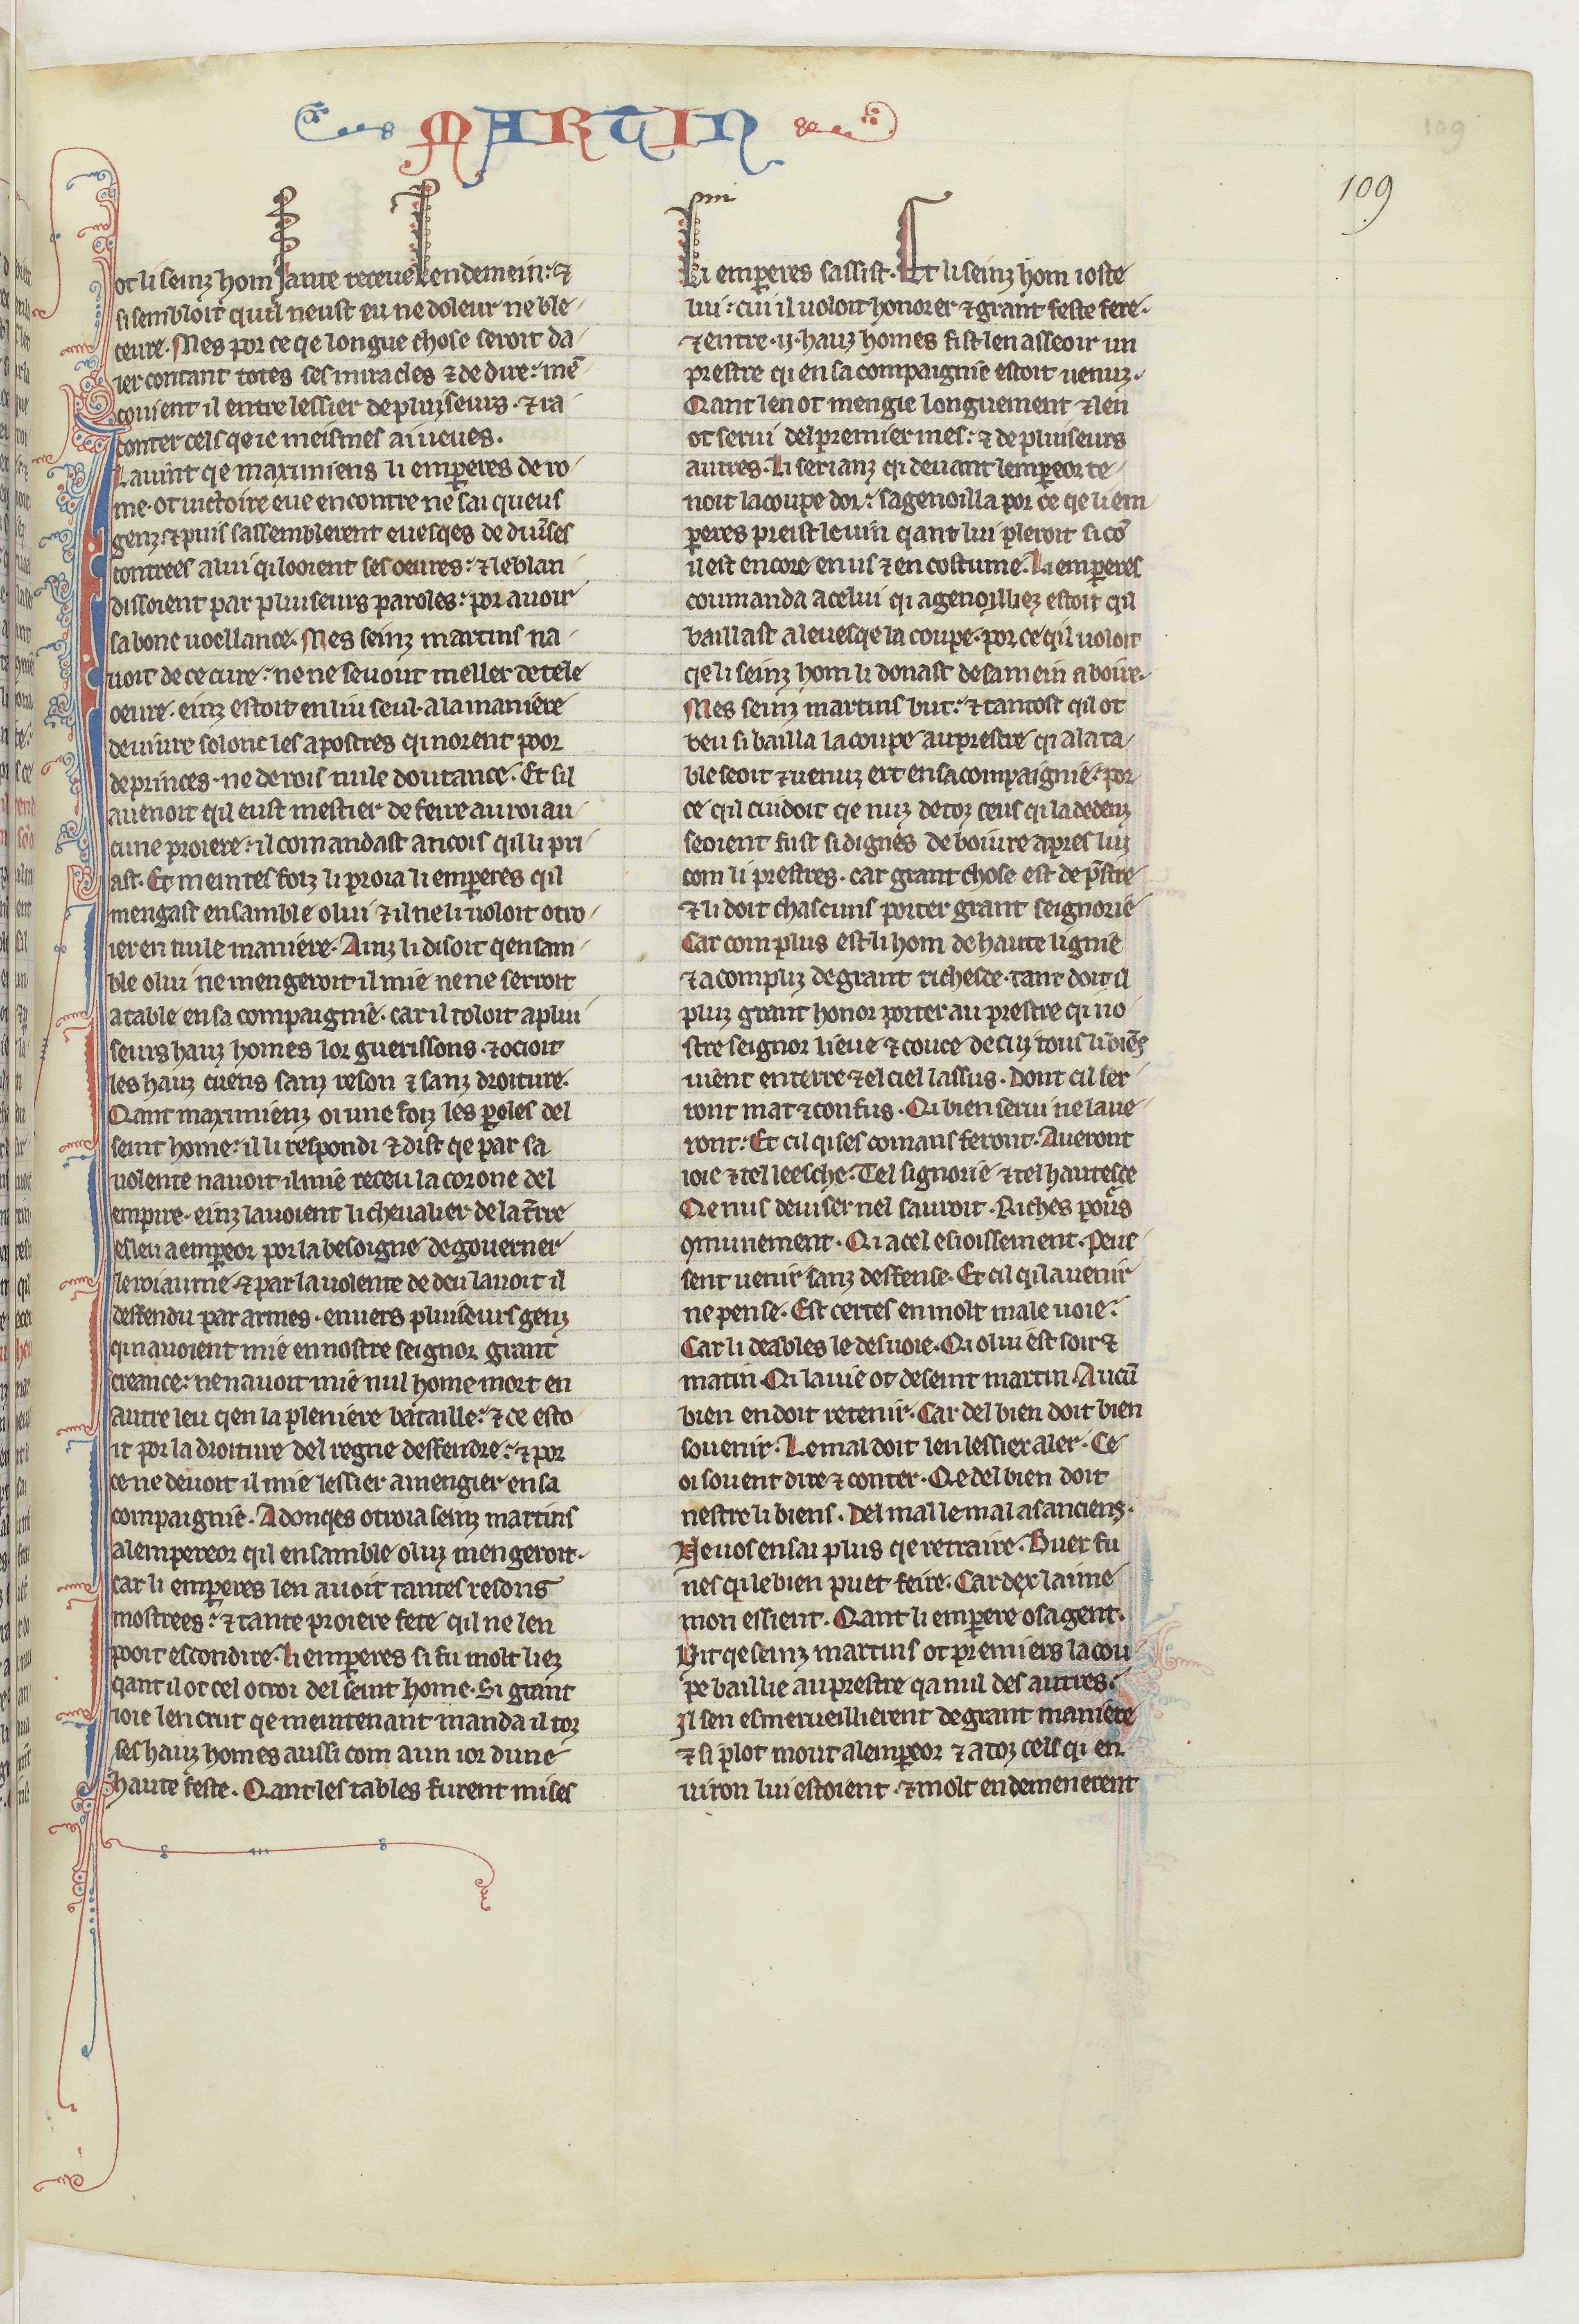 MARTIN
109
109
ot li seinz hom sante receue lendemein: ⁊
si sembloit quil neust eu ne doleur ne ble
ceure. Mes por ce qe longue chose seroit da
ier contant totes ses miracles ⁊ de dire: mē
couient il entrelessier de pluzseurs. ⁊ ra
conter cels qe ie meismes ai ueues.
Lauint qe maximiens li emꝑeres de ro
me. ot uictoire eue encontre ne sai queus
genz. ⁊ puis sassemblerent euesqes de diu̾ses
contrees a lui qi looient ses oeures: ⁊ le blan
dissoient par pluiseurs paroles: por auoir
sa bone uoellance. Mes seinz martins na
uoit de ce cure: ne ne seuout meller de tele
oeure. einz estoit en lui seul. a la maniere
de uiure solonc les apostres qi norent poor
de princes. ne de rois nule doutance. Et sil
auenoit qil eust mestier de feire au roi au
cune proiere: il comandast ancois qil li pri
ast. Et meintes foiz li proia li emꝑeres qil
mengast ensamble o lui ⁊ il ne li uoloit otro
ier en nule maniere. Ainz li disoit qensam
ble o lui ne mengeroit il mie ne ne serroit
a table en sa compaignie. car il toloit a plui
seurs hauz homes lor guerissons. ⁊ ocioit
les hauz cuens sanz reson ⁊ sanz droiture.
Qant maximienz oi une foiz les ꝑoles del
seint home: il li respondi ⁊ dist qe par sa
uolente nauoit il mie receu la corone del
empire. einz lauoient li cheualier de la t̾rre
esleu a emꝑeor por la besoigne de gouerner
le roiaume. ⁊ par la uolente de deu lauoit il
deffendu par armes. enuers pluiseurs genz
qi nauoient mie en nostre seignor grant
creance: ne nauoit mie nul home mort en
autre leu qen la pleniere bataille: ⁊ ce esto
it por la droiture del regne deffendre: ⁊ por
ce ne deuoit il mie lessier a mengier en sa
compaignie. Adonqes otroia seinz martins
a lempereor qil ensamble o luz mengeroit.
car li emꝑeres len auoit tantes resons
mostrees: ⁊ tante proiere fete qil ne len
pooit escondire. Li emꝑeres si fu molt liez
qant il ot cel otroi del seint home. Si grant
ioie len crut qe meintenant manda il toz
ses hauz homes aussi com a un ior dune
haute feste. Qant les tables furent mises
Li emꝑeres sassist. Et li seinz hom ioste
lui: cui il uoloit honorer ⁊ grant feste fere.
⁊ entre .ij. hauz homes fist len asseoir un
prestre qi en sa compaignie estoit uenuz.
Qant len ot mengie longuement ⁊ len
ot serui del premier mes: ⁊ de pluiseurs
autres. Li serianz qi deuant lemꝑeor te
noit la coupe dor: sagenoilla por ce qe li em
ꝑeres preist le uin qant lui pleroit si cō
il est encore en us ⁊ en costume. Li emꝑeres
coumanda a celui qi agenoilliez estoit qil
baillast a leuesqe la coupe. por ce qil uoloit
qe li seinz hom li donast de sa mein a boire.
Mes seinz martins but: ⁊ tantost qil ot
beu si bailla la coupe au prestre qi a la ta
ble seoit ⁊ uenuz ert en sa compaignie: por
ce qil cuidoit qe nuz de toz ceus qi la dedenz
seoient fust si dignes de boiure apres lui
com li prestres. car grant chose est de p̄stre
⁊ li doit chascuns porter grant seignorie
Car com plus est li hom de haute lignie
⁊ a com pluz de grant richesce. tant doit il
pluz grant honor porter au prestre qi no
stre seignor lieue ⁊ couce de cuz tous li biēs
uient en terre ⁊ el ciel lassus. Dont cil ser
ront mat ⁊ confus. Qi bien serui ne laue
ront: Et cil qi ses comans feront. Aueront
ioie ⁊ tel leesche. Tel signorie ⁊ tel hautesce
Qe nus deuiser nel sauroit. Riches pou̾s
ꝯmunement. Qi a cel esioissement. Peus
sent uenir sanz deffense. Et cil qi la uenir
ne pense. Est certes en molt male uoie:
Car li deables le desuoie. Qi o lui est soir ⁊
matin. Qi la uie ot de seint martin. Aucū
bien en doit retenir. Car del bien doit bien
souenir. Le mal doit len lessier aler. Ce
oi souent dire ⁊ conter. Qe del bien doit
nestre li biens. Del mal le mal a sanciens.
Ne uos en sai plus qe retraire. Buer fu
nes qi le bien puet feire. Car dex laime
mon essient. Qant li empere o sa gent.
Vit qe seinz martins ot premiers la cou
pe baillie au prestre qa nul des autres:
Il sen esmerueillierent de grant maniere
⁊ si plot mout a lemꝑeor ⁊ a toz cels qi en
uiron lui estoient. ⁊ molt en demenerent